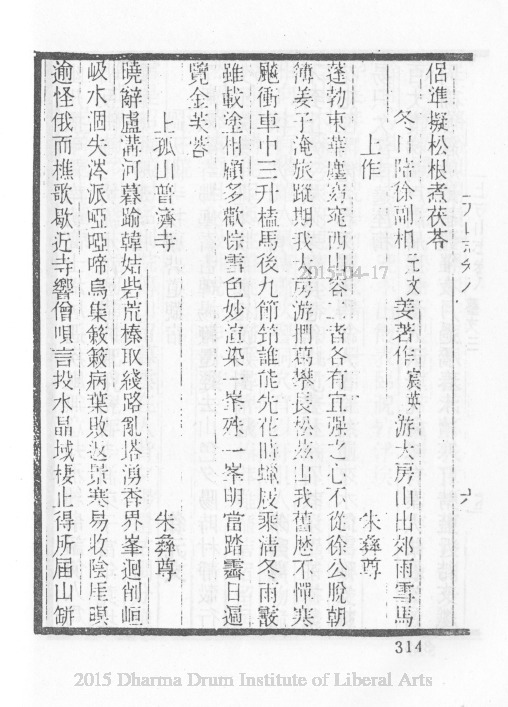 侶準擬松根煮茯苓
冬日陪徐副相元文姜著作宸英游大房山出郊雨雪馬
上作 朱彝尊
蓬勃東華塵 西山容二者各有宜强之心不從徐公脫朝
簿姜子淹旅蹤期我大房游捫葛攀長松茲山我舊歷不憚寒
飈衝車中三升榼馬後九節笻誰能先花時蠟屐乘清冬雨霰
雖載塗相顧多歡悰雪色妙渲染一峯殊一峯明當踏霽日遍
覽金芙蓉
上孤山普濟寺 朱彝尊
曉辭盧溝河暮踰韓姑砦荒榛取綫路亂塔湧香界峯迴削崌
岋水涸失涔派啞啞啼烏集簌簌病葉敗返景寒易收陰崖暝
逾怪俄而樵歌歇近寺響僧唄言投水晶域棲止得所屆山缾
六
314
2015-04-17
2015 Dharma Drum Institute of Liberal Arts